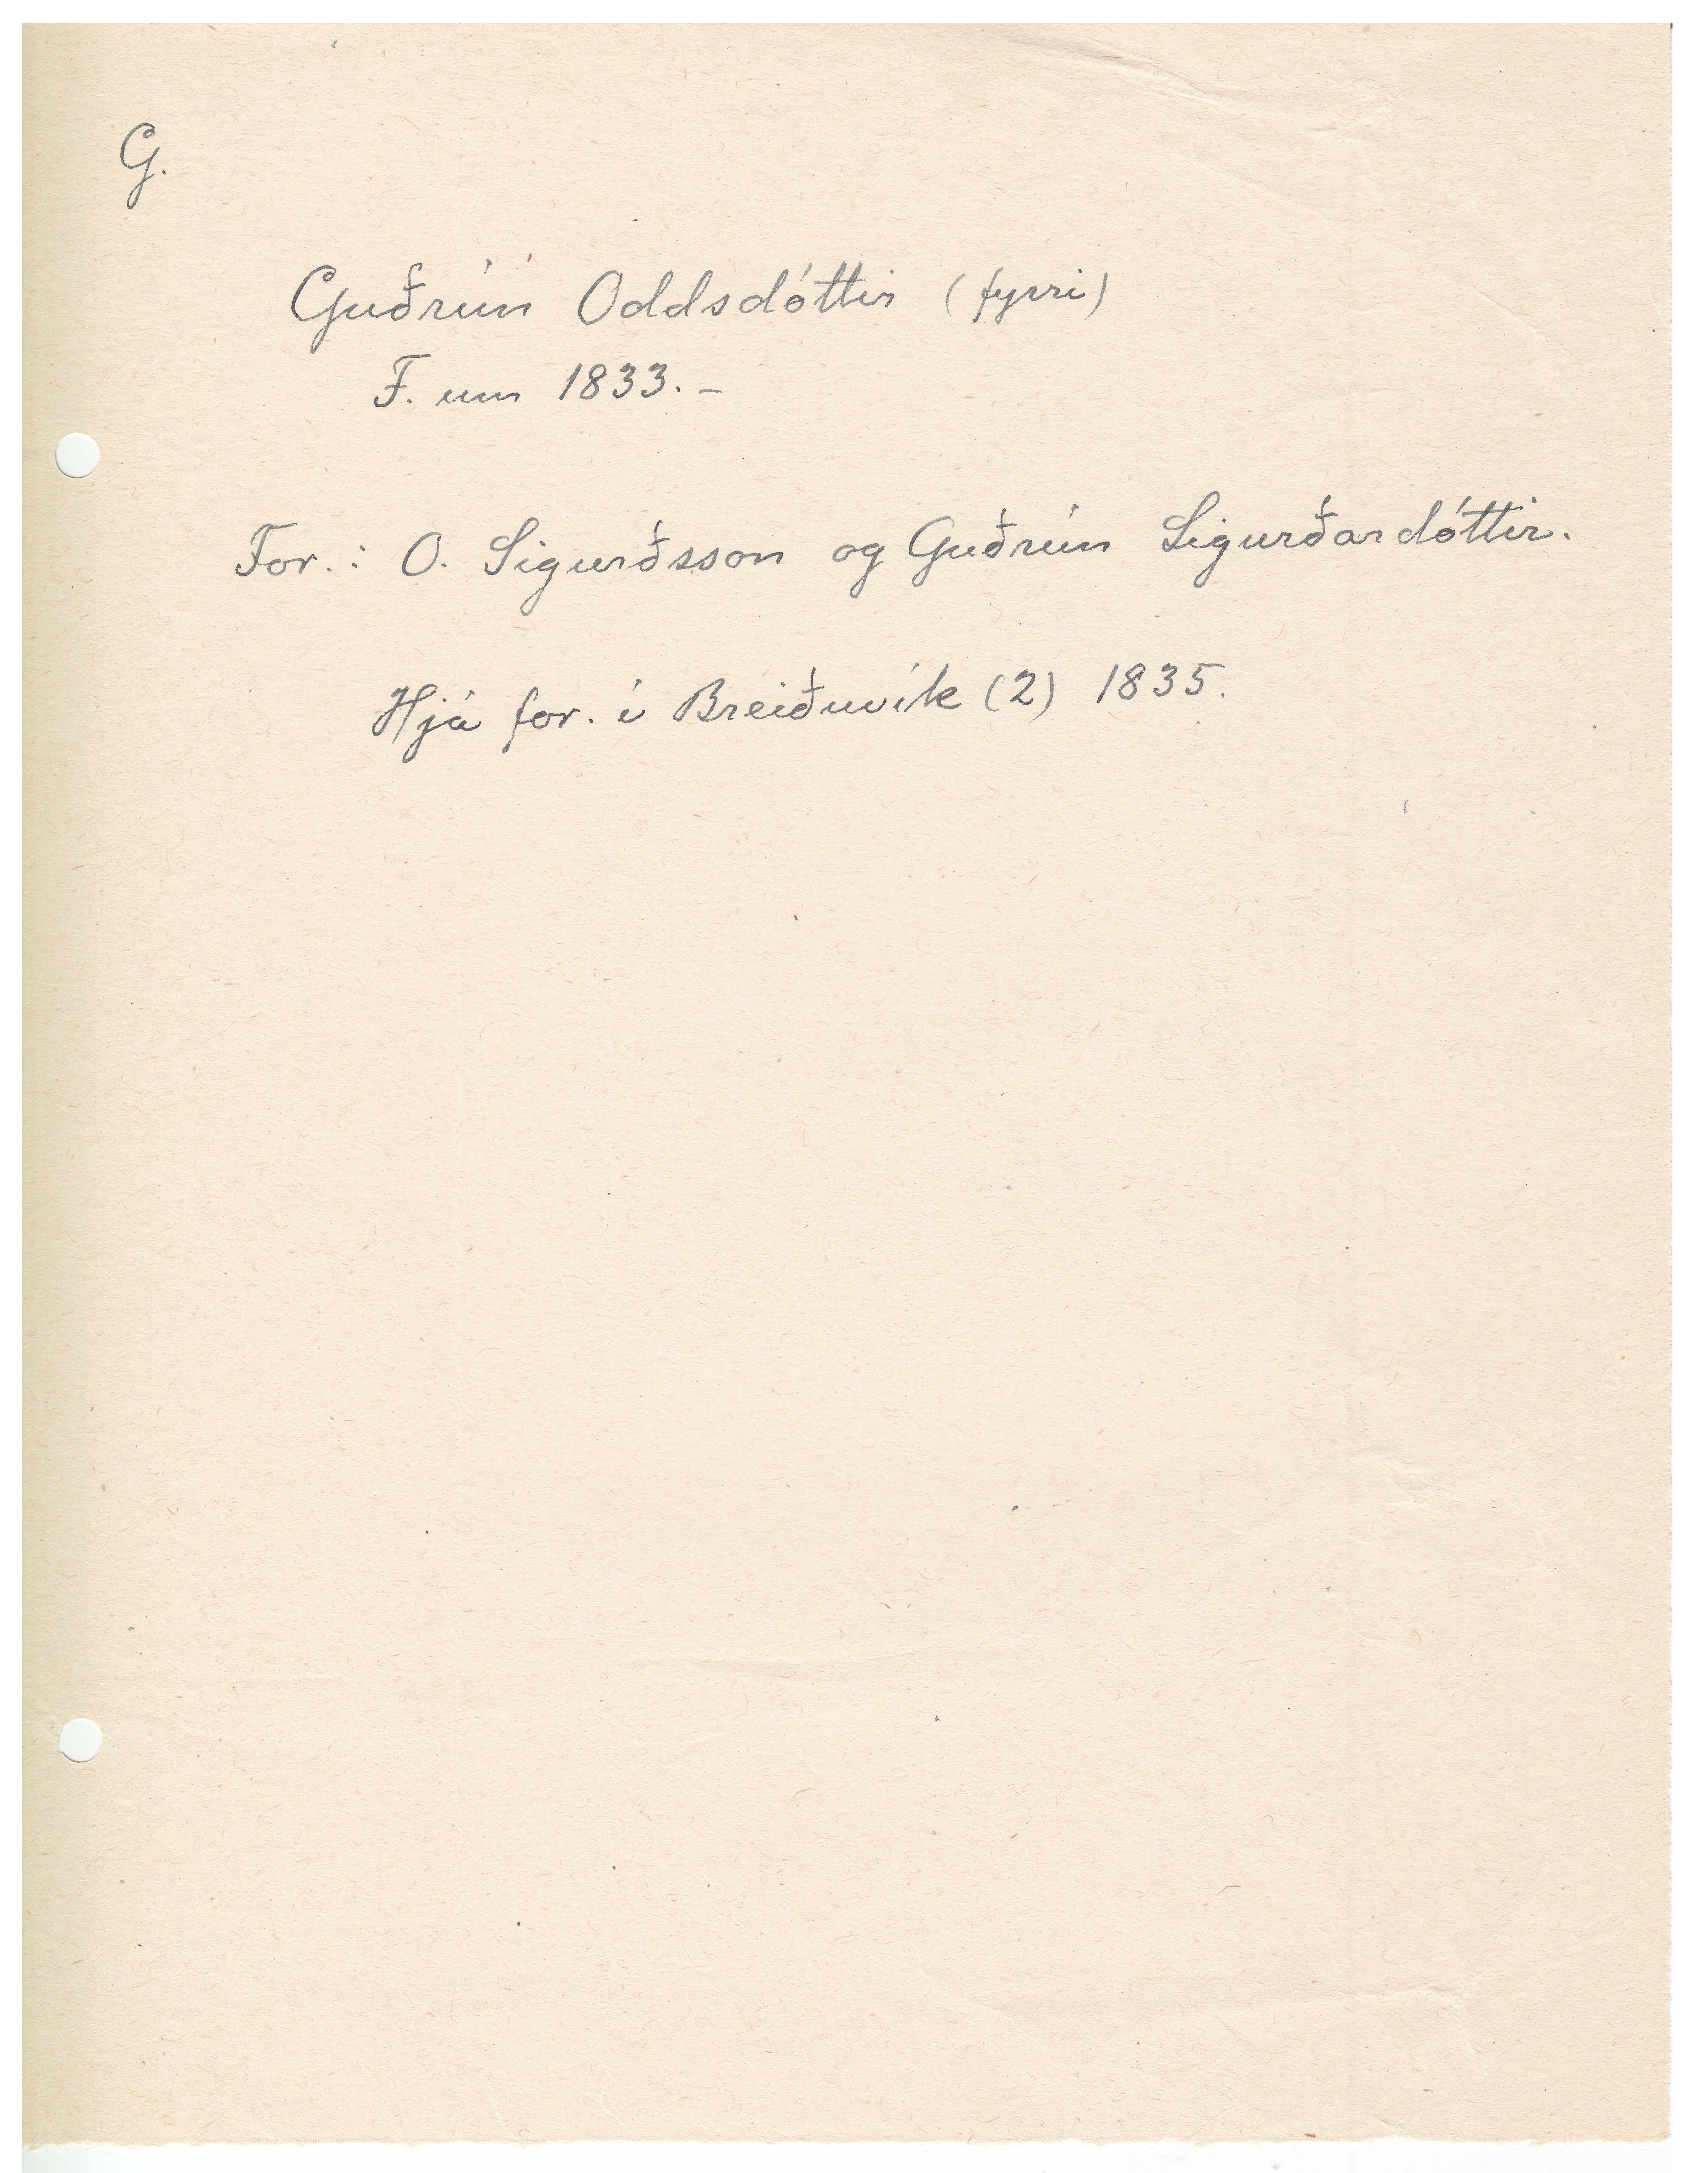 G.
Guðrún Oddsdóttir (fyrri)
F. um 1833. –
For.: O. Sigurðsson og Guðrún Sigurðardóttir.
Hjá for. í Breiðuvík (2) 1835.